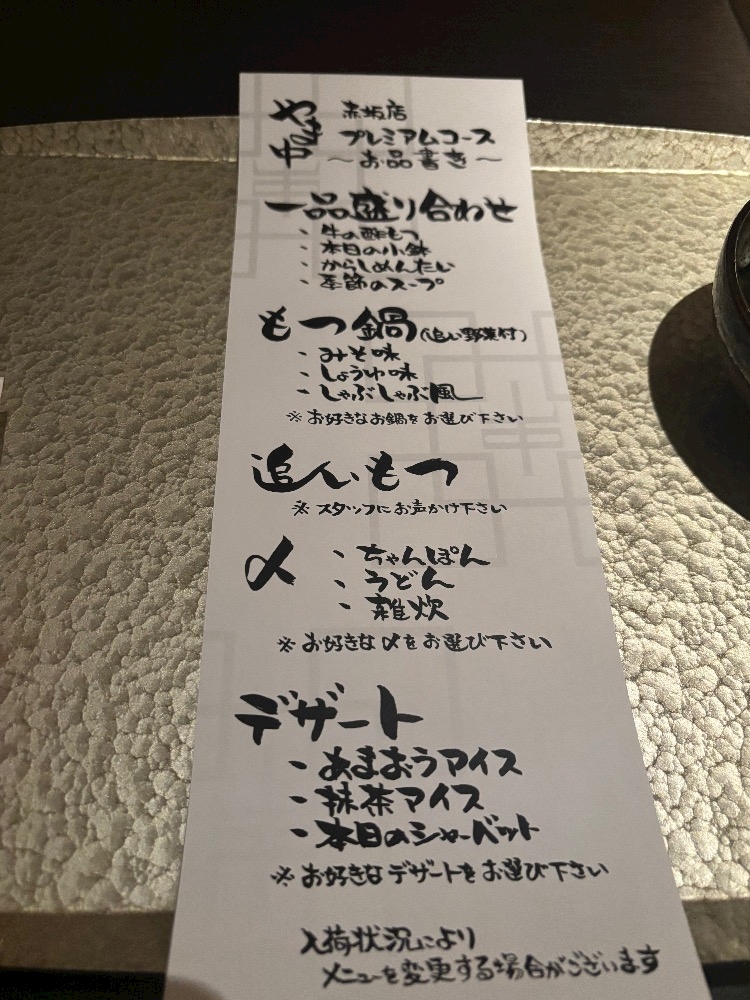 やま中 赤坂店
プレミアムコース
～お品書き～
一品盛り合わせ
・牛の酢もつ
・本日の小鉢
・からしめんたい
・季節のスープ
もつ鍋(追い野菜付)
・みそ味
・しょうゆ味
・しゃぶしゃぶ風
※お好きなお鍋をお選び下さい
追いもつ
※スタッフにお声かけ下さい
〆
・ちゃんぽん
・うどん
・雑炊
※お好きな〆をお選び下さい
デザート
・あまおうアイス
・抹茶アイス
・本日のシャーベット
※お好きなデザートをお選び下さい
入荷状況により
メニューを変更する場合がございます